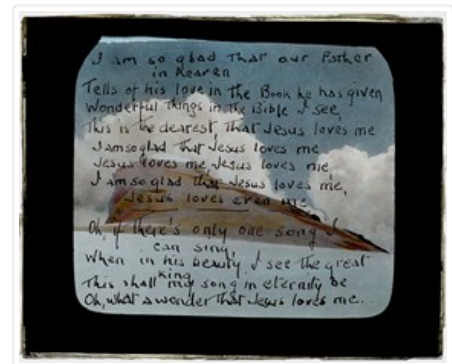 I am so glad that our Father
in Heaven
Tells of his love in the Book he has given
Wonderful things in the Bible I see,
This is the dearest that Jesus loves me
I am so glad that Jesus loves me
Jesus loves me, Jesus loves me
I am so glad that Jesus loves me,
Jesus loves even me
Oh, if there's only one song I
can sing,
When in his beauty, I see the great
king
This shall my song in eternity be
Oh, what a wonder that Jesus loves me.